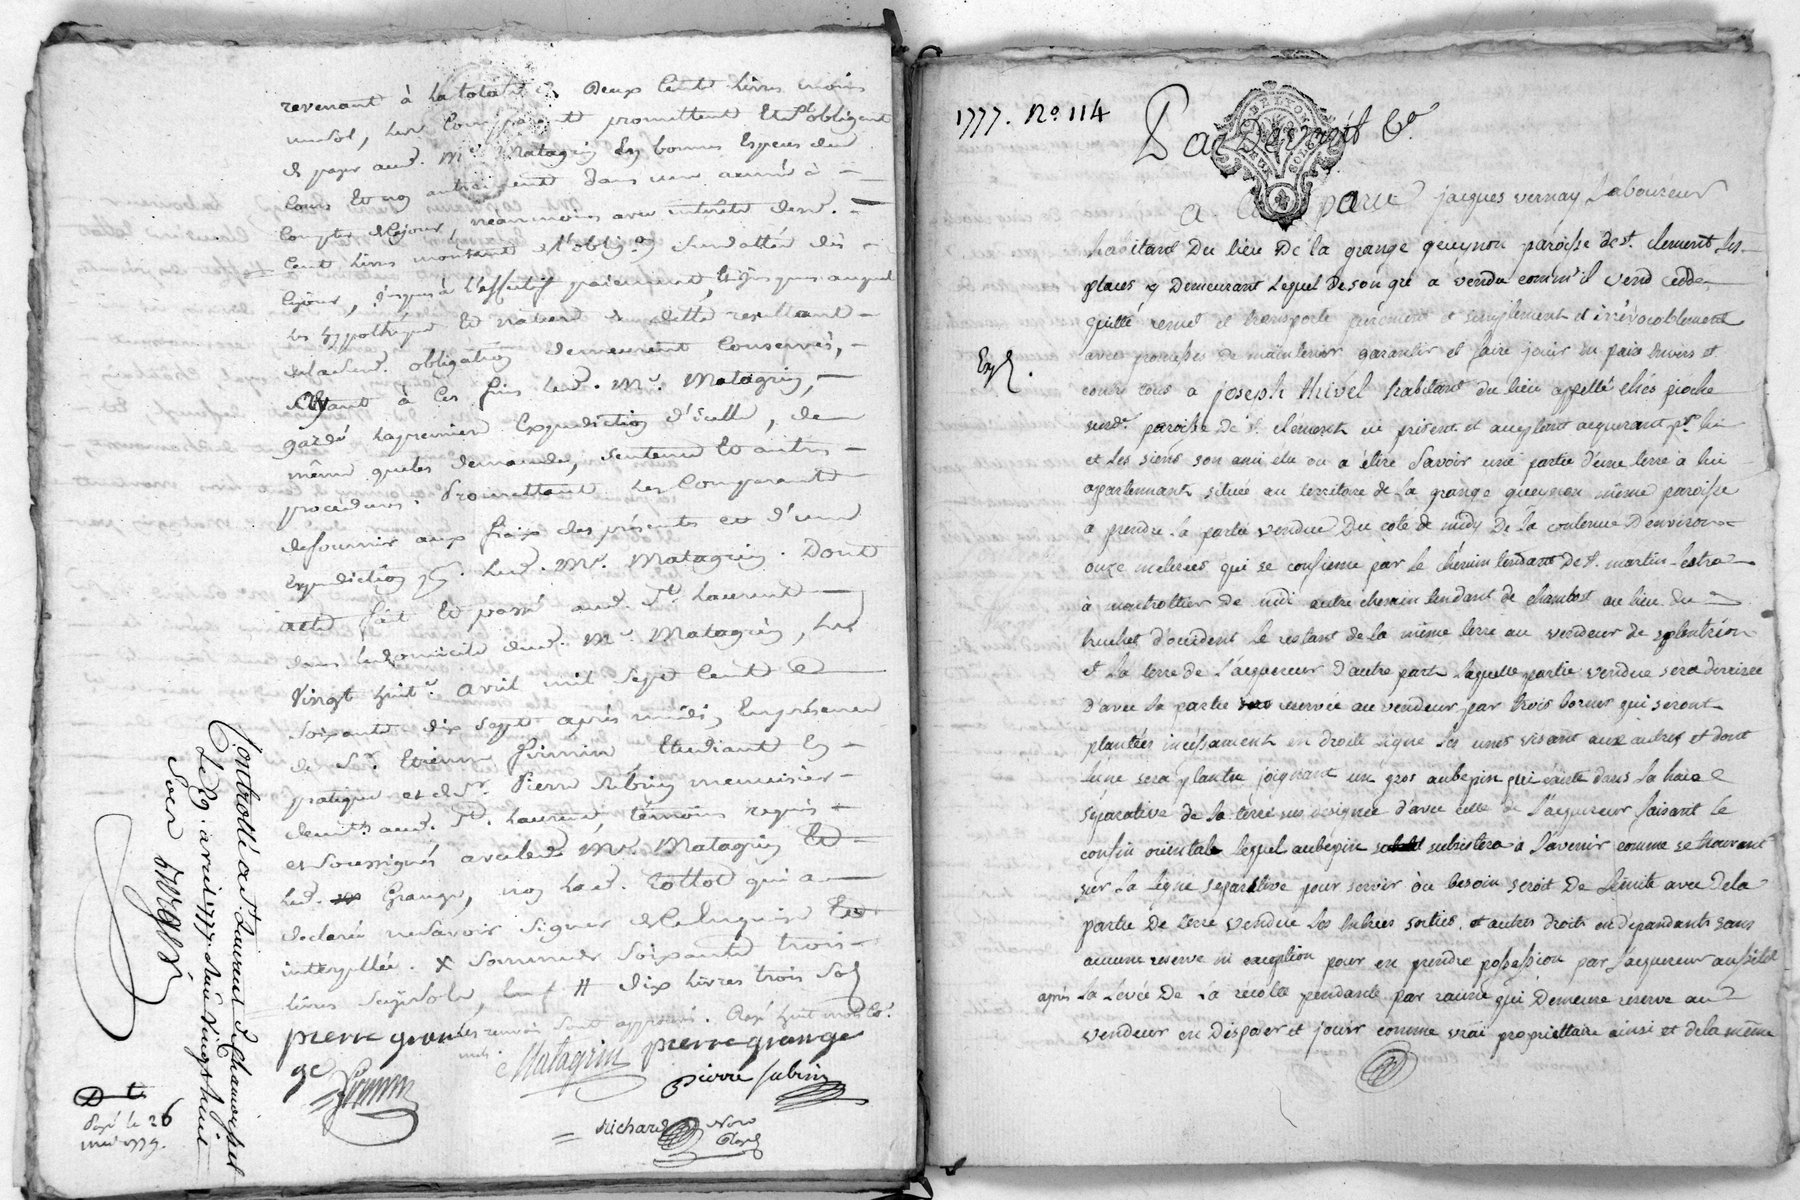 revenant à la totalité de Deux Cent Livres moins
un sol, les Comparants promettent et s'obligent
de payer aud. Me. Matagrin En bonnes Especes du
Cours Et non autrement dans une année à
Compter de ce jour, néanmoins avec intérêt desd.
Cent Livres montant de l'oblig.on Sus dattée dès
ce jour, jusques à l'Effectif paiement, Et jusques auquel
les hypothéques Et nature de dette resultant
de lad. obligation demeurent Conservés,
ayant à Ces fins led. Me. Matagrin,
gardé la premiere Expedition d'icelle, de
même que les demandes, Sentence Et autres
procedures. Promettant les Comparants
de fournir aux fraix des présentes et d'une
Expedition pr. led. Me. Matagrin. Dont
acte fait Et passé aud. St. Laurent
dans le domicile dud. Me. Matagrin, Le
Vingt huit. avril mil Sept Cent
Soixante dix Sept après midi, En présence
de Sr. Etienne Firmin Etudiant En
pratique et de Sr. Pierre Subrin menuisier
demts. aud. St. Laurent, témoins requis
et Soussignés avec led. Me. Matagrin Et
led. Grange, non lad. Tottot qui a
declaré ne Savoir Signer de ce Enquise Et
interpellée. x Sommes Soixante trois
Livres Six Sols, # dix Livres trois Sols
les renvois Sont approuvés. Rayé huit mots
pierre grange
Matagrin pierre grange
Firmin
pierre subrin
Richard Nore
Royal
Controllé a St. Laurent de Chamousset
Le 29. avril 1777. Reçu Vingt huit
Sols
Payé le 26
mai 1779.
1777. No. 114
Par Devant &c.
DE LYON
a Comparu jacques vernay Laboureur
habitant Du lieu De la grange gueynon paroisse de st. clement les
places y Demeurant Lequel De son gré a vendu comm'il vend cedde
quitte remet et transporte purement et simplement et irrévocablement
avec promesses de maintenir garantir et faire jouir en paix envers et
contre tous a joseph Thivel habitant du lieu appellé chés pioche
susd. paroisse De st. clément ici présent et acceptant acquerant pr. lui
et les siens son ami elu ou a élire Savoir une partie d'une terre a lui
apartennant située au territoire de La grange gueynon même paroisse
a prendre la partie vendue Du coté de midy De la contenue D'environ
onze metérées qui se confienne par le chemin tendant De st. martin lestra
à montrottier de midi autre chemin tendant de chambost au lieu du
huchet d'occident le restant de la même terre au vendeur de septentrion
et La terre de L'acquereur d'autre part Laquelle partie vendue sera divisée
d'avec la partie reservée au vendeur par trois bornes qui seront
plantées incéssament en droite Ligne les unes visant aux autres et dont
lune sera plantée joignant un gros aubepin qui existe dans la haie
séparative de La terre sus désignée d'avec celle de L'acquereur faisant le
confin orientale lequel aubepin subsistera a L'avenir comme se trouvant
sur La ligne séparative pour servir ou besoin seroit De Limite avec de la
partie De terre vendue Les Entrées sorties et autres droits en dépendants sans
aucune reserve ni exception pour en prendre possession par L'acquereur aussitôt
après La Levée De La récolte pendante par racine qui Demeure reserve au
vendeur en Disposer et jouir comme vrai propriettaire ainsi et de la même